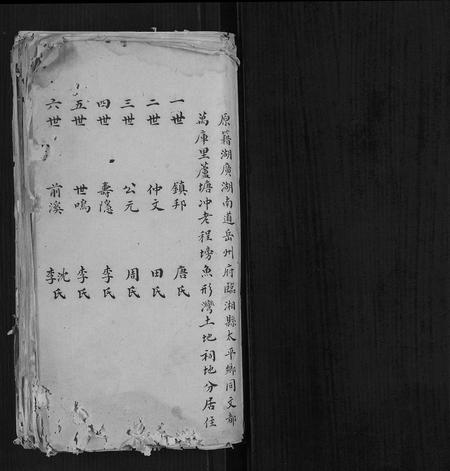 原籍湖廣湖南道岳州府臨湘縣太平鄉同文都
萬庫里蘆塘冲老程塝魚形灣土地祠地分居住
一世 鎮邦 唐氏
二世 仲文 田氏
三世 公元 周氏
四世 壽隱 李氏
五世 世鳴 李氏
六世 前溪 沈氏 李氏